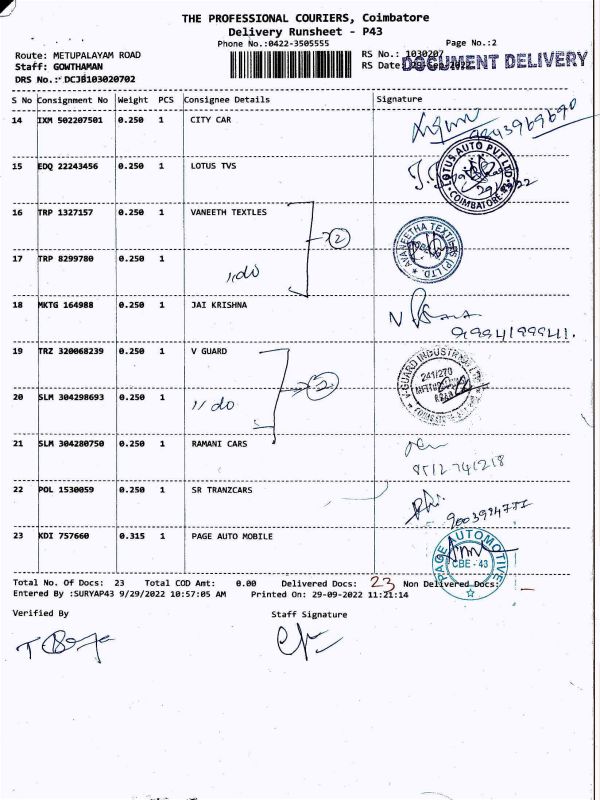 THE PROFESSIONAL COURIERS, Coimbatore
Delivery Runsheet - P43
Phone No.:0422-3505555
Page No.:2
Route: METUPALAYAM ROAD
RS No.: 1030207
Staff: GOWTHAMAN
RS Date:
DOCUMENT DELIVERY
DRS No.: DCJB103020702
S No Consignment No Weight PCS Consignee Details Signature
14 IXM 502207501 0.250 1 CITY CAR
9843969690
15 EDQ 22243456 0.250 1 LOTUS TVS
LOTUS AUTO PVT LTD COIMBATORE-43
16 TRP 1327157 0.250 1 VANEETH TEXTLES
2
AVANEETHA TEXTILES (P) LTD.
17 TRP 8299780 0.250 1
,,do
18 MKTG 164988 0.250 1 JAI KRISHNA
9994199941.
19 TRZ 320068239 0.250 1 V GUARD
V-GUARD INDUSTRIES LTD
241/270
2
20 SLM 304298693 0.250 1 ,, do
21 SLM 304280750 0.250 1 RAMANI CARS
8512741218
22 POL 1530059 0.250 1 SR TRANZCARS
23 KDI 757660 0.315 1 PAGE AUTO MOBILE
PAGE AUTOMOTIVE
CBE - 43
Total No. Of Docs: 23 Total COD Amt: 0.00 Delivered Docs: 23 Non Delivered Docs: -
Entered By :SURYAP43 9/29/2022 10:57:05 AM Printed On: 29-09-2022 11:21:14
Verified By Staff Signature